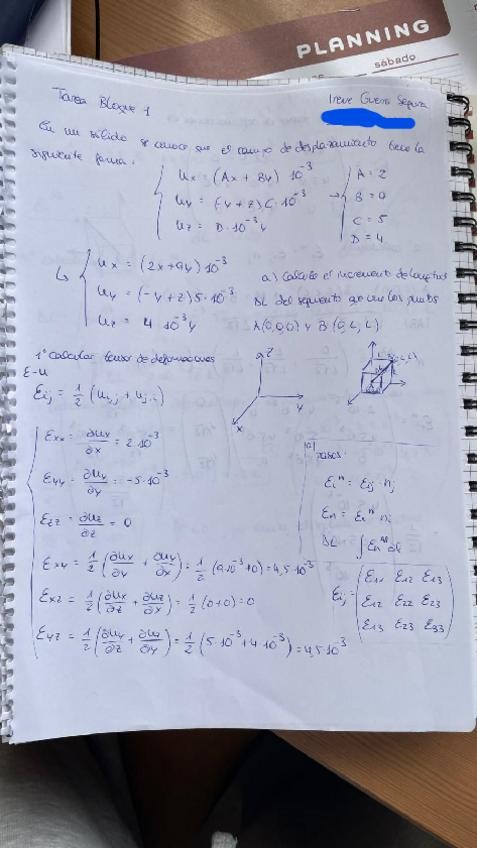 PLANNING
sábado
Tarea Bloque 1
Irene Guerra Segura
En un sólido se conoce que el campo de desplazamiento tiene la
siguiente forma:
Ux = (Ax + By) 10^-3
Uy = (-y + z) C · 10^-3
Uz = D · 10^-3 y
→
A = 2
B = 9
C = 5
D = 4
↳
Ux = (2x + 9y) 10^-3
Uy = (-y + z) 5 · 10^-3
Uz = 4 10^-3 y
a) Calcular el incremento de longitud
ΔL del segmento que une los puntos
A(0,0,0) y B(0,L,L)
1º calcular tensor de deformaciones
ε-u
εij = 1/2 (ui,j + uj,i)
εxx = ∂ux/∂x = 2·10^-3
εyy = ∂uy/∂y = -5·10^-3
εzz = ∂uz/∂z = 0
εxy = 1/2 (∂ux/∂y + ∂uy/∂x) = 1/2 (9·10^-3 + 0) = 4,5·10^-3
εxz = 1/2 (∂ux/∂z + ∂uz/∂x) = 1/2 (0+0) = 0
εyz = 1/2 (∂uy/∂z + ∂uz/∂y) = 1/2 (5·10^-3 + 4·10^-3) = 4,5·10^-3
z
y
x
pasos:
εi^n = εij · nj
εn = εi^n ni
ΔL ∫ εn^AB dl
εij = ( ε11 ε12 ε13
ε12 ε22 ε23
ε13 ε23 ε33 )